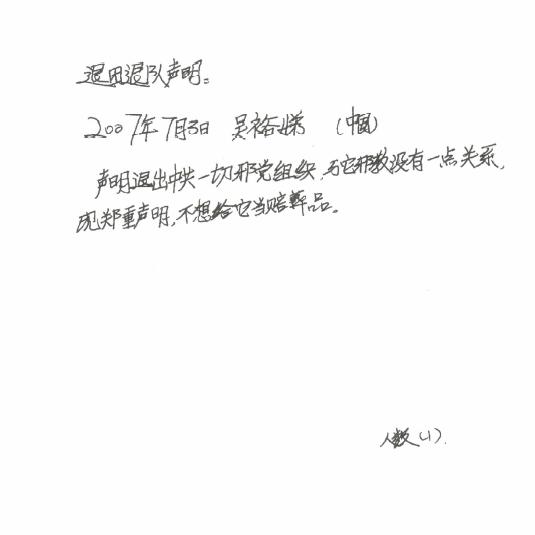 退团退队声明。
2007年7月3日 吴裕娣 (中国)
声明退出中共一切邪党组织,与它邪教没有一点关系,
现郑重声明,不想给它当陪葬品。
人数(1).